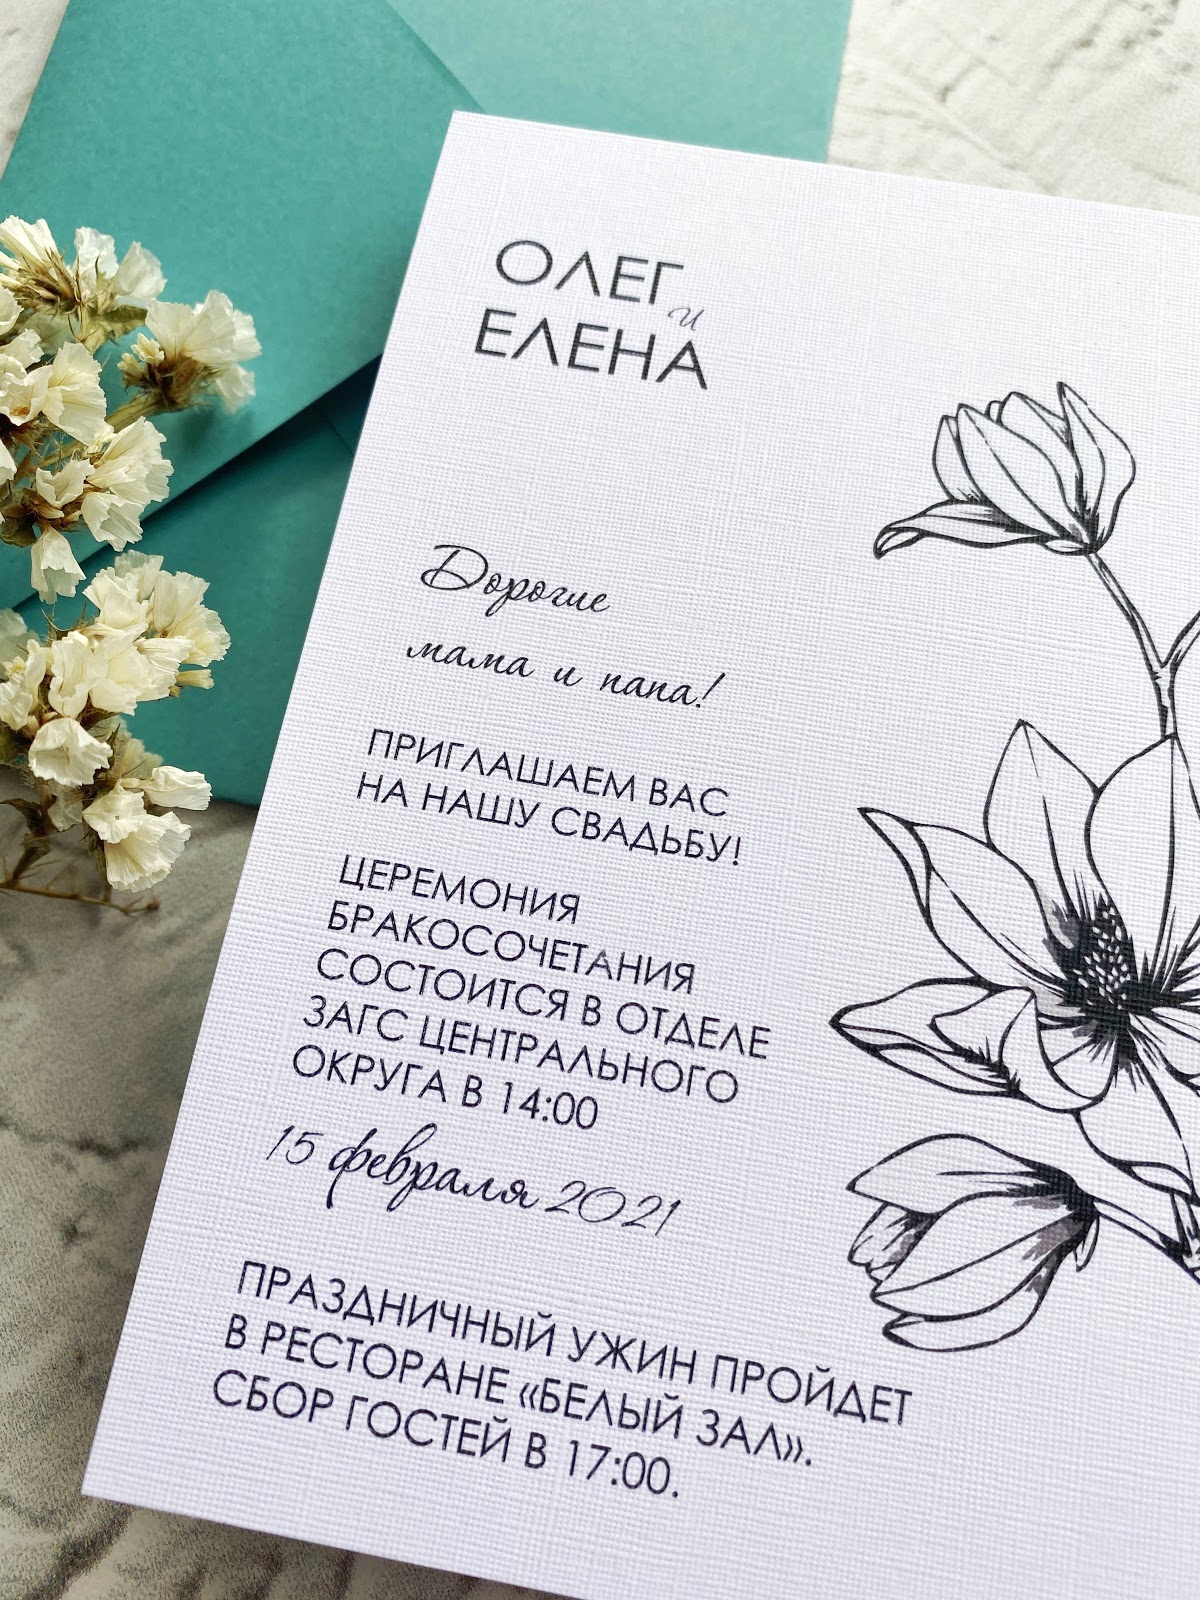 ОЛЕГ
и
ЕЛЕНА
Дорогие
мама и папа!
ПРИГЛАШАЕМ ВАС
НА НАШУ СВАДЬБУ!
ЦЕРЕМОНИЯ
БРАКОСОЧЕТАНИЯ
СОСТОИТСЯ В ОТДЕЛЕ
ЗАГС ЦЕНТРАЛЬНОГО
ОКРУГА В 14:00
15 февраля 2021
ПРАЗДНИЧНЫЙ УЖИН ПРОЙДЕТ
В РЕСТОРАНЕ «БЕЛЫЙ ЗАЛ».
СБОР ГОСТЕЙ В 17:00.